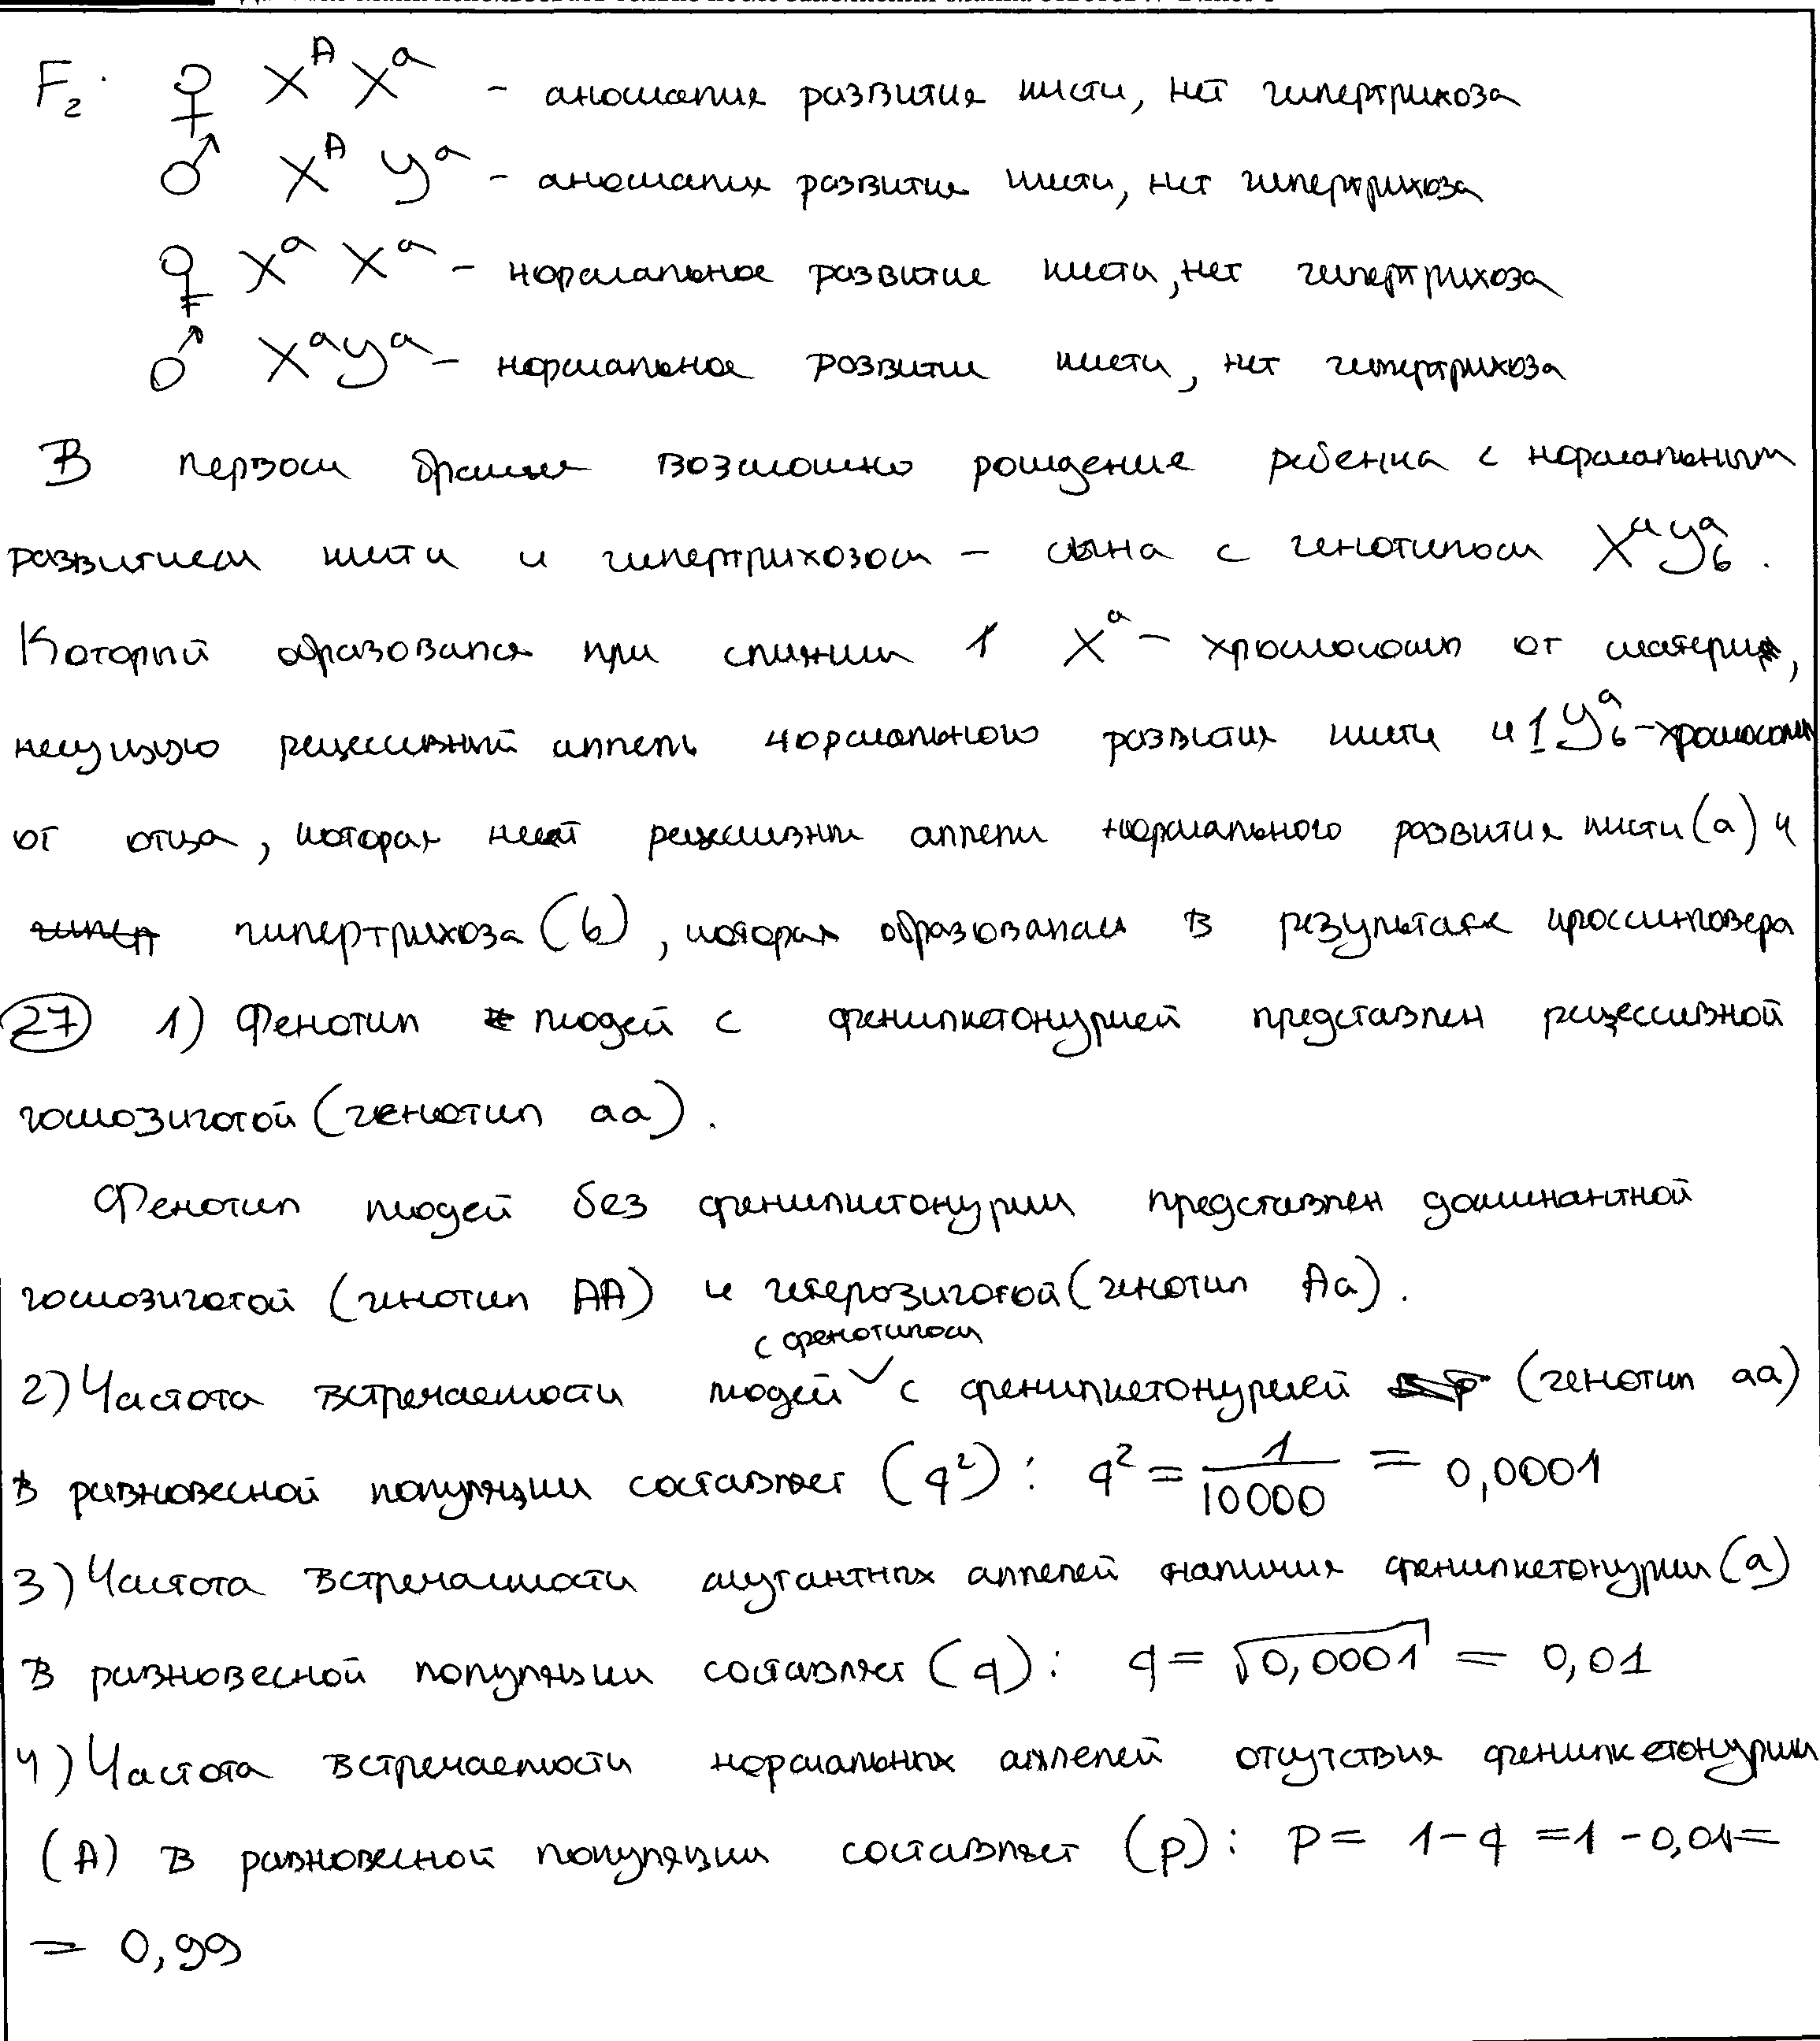 F₂: ♀ X^A X^a - аномалия развития кисти, нет гипертрихоза
♂ X^A У^а - аномалия развития кисти, нет гипертрихоза
♀ X^a X^a - нормальное развитие кисти, нет гипертрихоза
♂ X^a У^а - нормальное развитие кисти, нет гипертрихоза
В первом браке возможно рождение ребенка с нормальным
развитием кисти и гипертрихозом - сына с генотипом X^a У^a_b.
Который образовался при слиянии 1 X^a - хромосомы от матери,
несущую рецессивный аллель нормального развития кисти и 1 У^a_b-хромосомы
от отца, которая несёт рецессивны аллели нормального развития кисти (а) и
гипертрихоза (b), которая образовалась в результате кроссинговера
27 1) Фенотип людей с фенилкетонурией представлен рецессивной
гомозиготой (генотип аа).
Фенотип людей без фенилкетонурии представлен доминантной
гомозиготой (генотип АА) и гетерозиготой (генотип Аа).
с фенотипом
2) Частота встречаемости людей с фенилкетонурией (генотип аа)
в равновесной популяции составляет (q²): q² = 1/10000 = 0,0001
3) Частота встречаемости мутантных аллелей наличия фенилкетонурии (а)
в равновесной популяции составляет (q): q = √0,0001 = 0,01
4) Частота встречаемости нормальных аллелей отсутствия фенилкетонурии
(А) в равновесной популяции составляет (p): p = 1 - q = 1 - 0,01 =
= 0,99